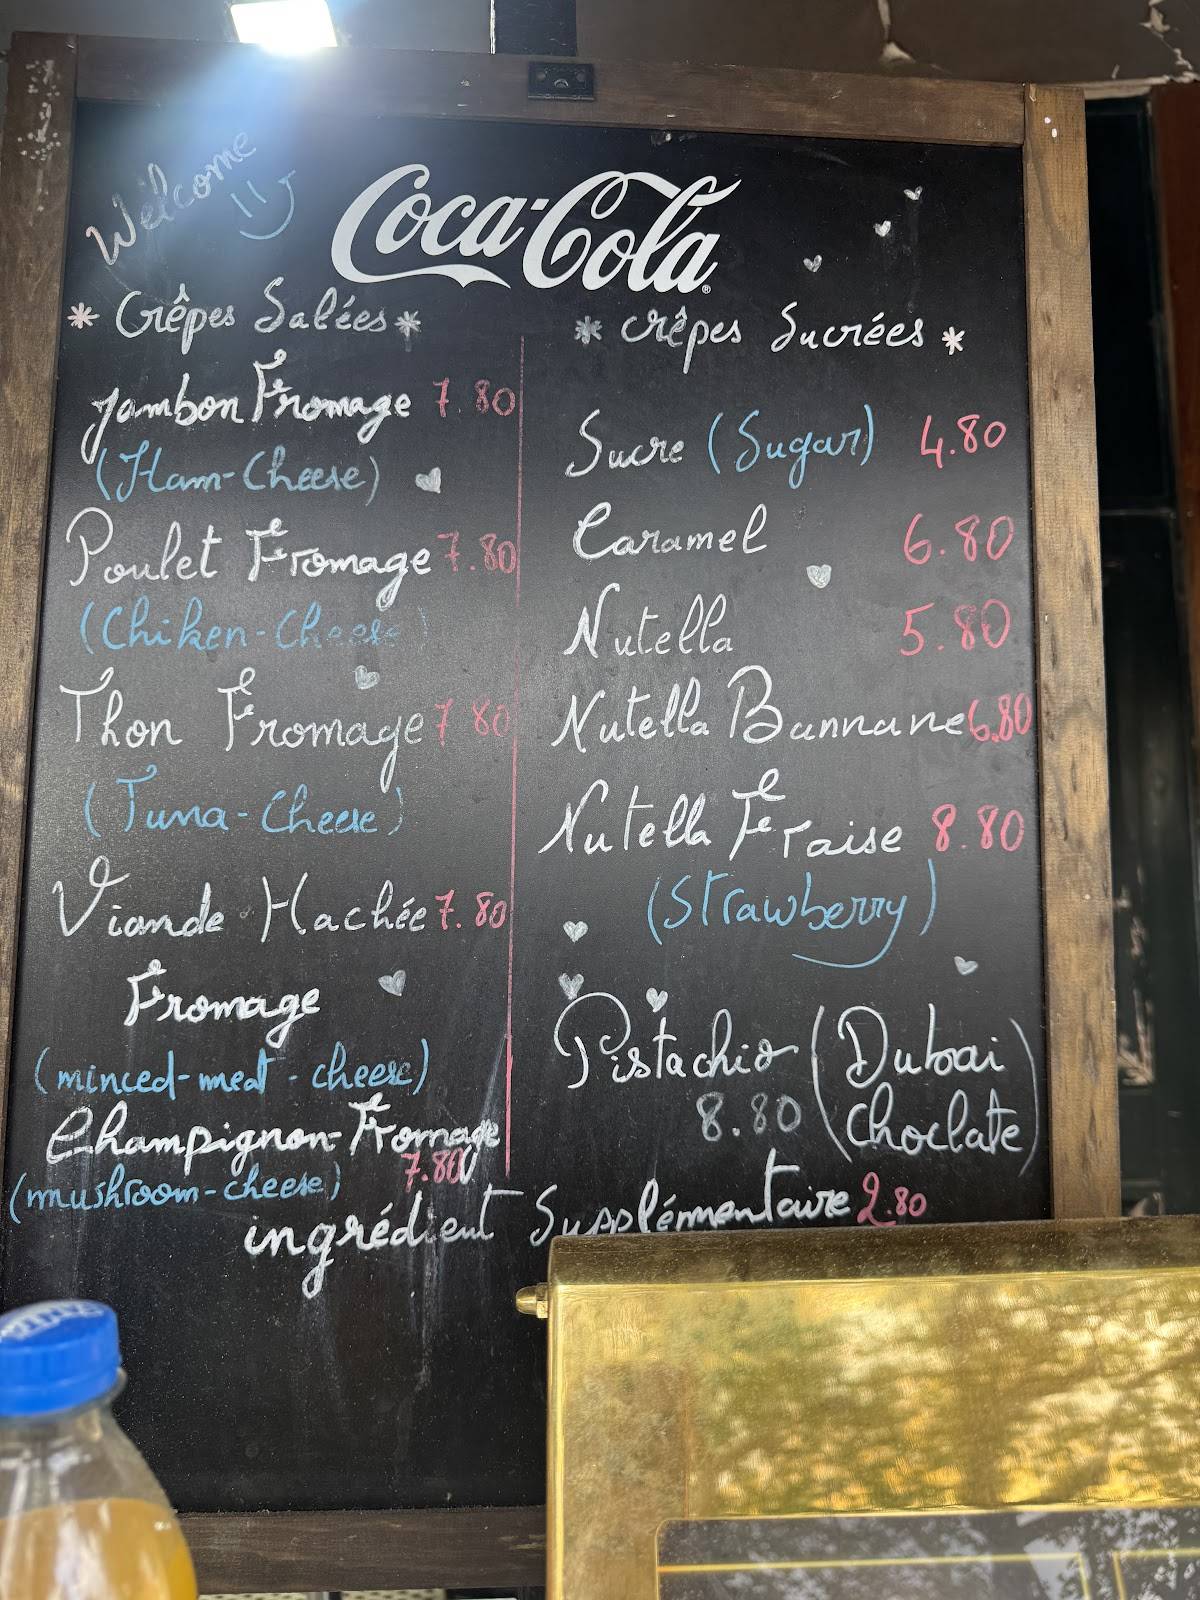 Welcome
Coca-Cola
* Crêpes Salées *
Jambon Fromage 7.80
(Ham-Cheese)
Poulet Fromage 7.80
(Chiken-Cheese)
Thon Fromage 7.80
(Tuna-Cheese)
Viande Hachée 7.80
Fromage
(minced-meat-cheese)
Champignon-Fromage
7.80
(mushroom-cheese)
* Crêpes Sucrées *
Sucre (Sugar) 4.80
Caramel 6.80
Nutella 5.80
Nutella Bannane 6.80
Nutella Fraise 8.80
(Strawberry)
Pistachio (Dubai
8.80 Choclate)
ingrédient Supplémentaire 2.80